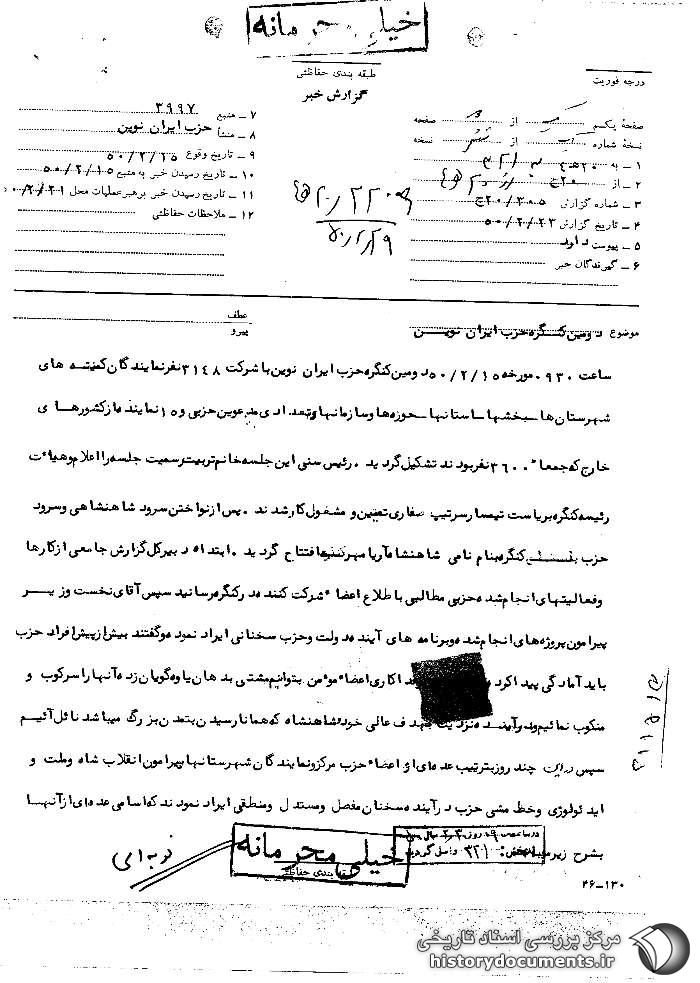 خیلی محرمانه
طبقه بندی حفاظتی
گزارش خبر
درجه فوریت
صفحهٔ یکم از صفحه
نسخهٔ شماره از نسخه
۱ – به
۲ – از ۲۰ ج
۳ – شماره گزارش ۲۰/۳۰۵ج
۴ – تاریخ گزارش ۵۰/۲/۲۳
۵ – پیوست دارد
۶ – گیرندگان خبر
۷ – منبع ۳۹۹۷
۸ – منشأ حزب ایران نوین
۹ – تاریخ وقوع ۵۰/۲/۱۵
۱۰ – تاریخ رسیدن خبر به منبع ۵۰/۲/۱۵
۱۱ – تاریخ رسیدن خبر برهبر عملیات محل ۵۰/۲/۲۱
۱۲ – ملاحظات حفاظتی
۵۰/۲/۲۹
عطف
پیرو
موضوع دومین کنگره حزب ایران نوین
ساعت ۰۹۳۰ مورخه ۵۰/۲/۱۵ دومین کنگره حزب ایران نوین با شرکت ۳۱۴۸ نفر نمایندگان کمیته های
شهرستان ها – بخشها – استانها – حوزه ها و سازمانها و تعدادی مدعوین حزبی و ۱۵ نماینده از کشورهای
خارج که جمعا" ۳۶۰۰ نفر بودند تشکیل گردید . رئیس سنی این جلسه خانم تربیت رسمیت جلسه را اعلام و هیات
رئیسه کنگره بریاست تیمسار سرتیپ صفاری تعیین و مشغول کار شدند . پس از نواختن سرود شاهنشاهی و سرود
حزب کنگره بنام نامی شاهنشاه آریامهر افتتاح گردید . ابتدا دبیر کل گزارش جامعی از کارها
و فعالیتهای انجام شده حزبی مطالبی باطلاع اعضاء شرکت کننده در کنگره رسانید سپس آقای نخست وزیر
پیرامون پروژه های انجام شده و برنامه های آینده دولت و حزب سخنانی ایراد نموده و گفتند بیش از پیش افراد حزب
باید آمادگی پیدا کرد اکاری اعضاء مومن بتوانیم مشتی بدهان یاوه گویان زده آنها را سرکوب و
منکوب نمائیم و در آینده نزدیک بهدف عالی خود شاهنشاه که همانا رسیدن بتمدن بزرگ میباشد نائل آئیم
سپس در این چند روز بترتیب عده ای از اعضاء حزب مرکز و نمایندگان شهرستانها پیرامون انقلاب شاه و ملت و
ایدئولوژی و خط مشی حزب در آینده سخنان مفصل و مستدل و منطقی ایراد نمودند که اسامی عده ای از آنها
بشرح زیر میباشد:
خیلی محرمانه
طبقه بندی حفاظتی
بخش ۳۲۱ واصل گردید
۲۶-۱۳۰
مرکز بررسی اسناد تاریخی
historydocuments.ir